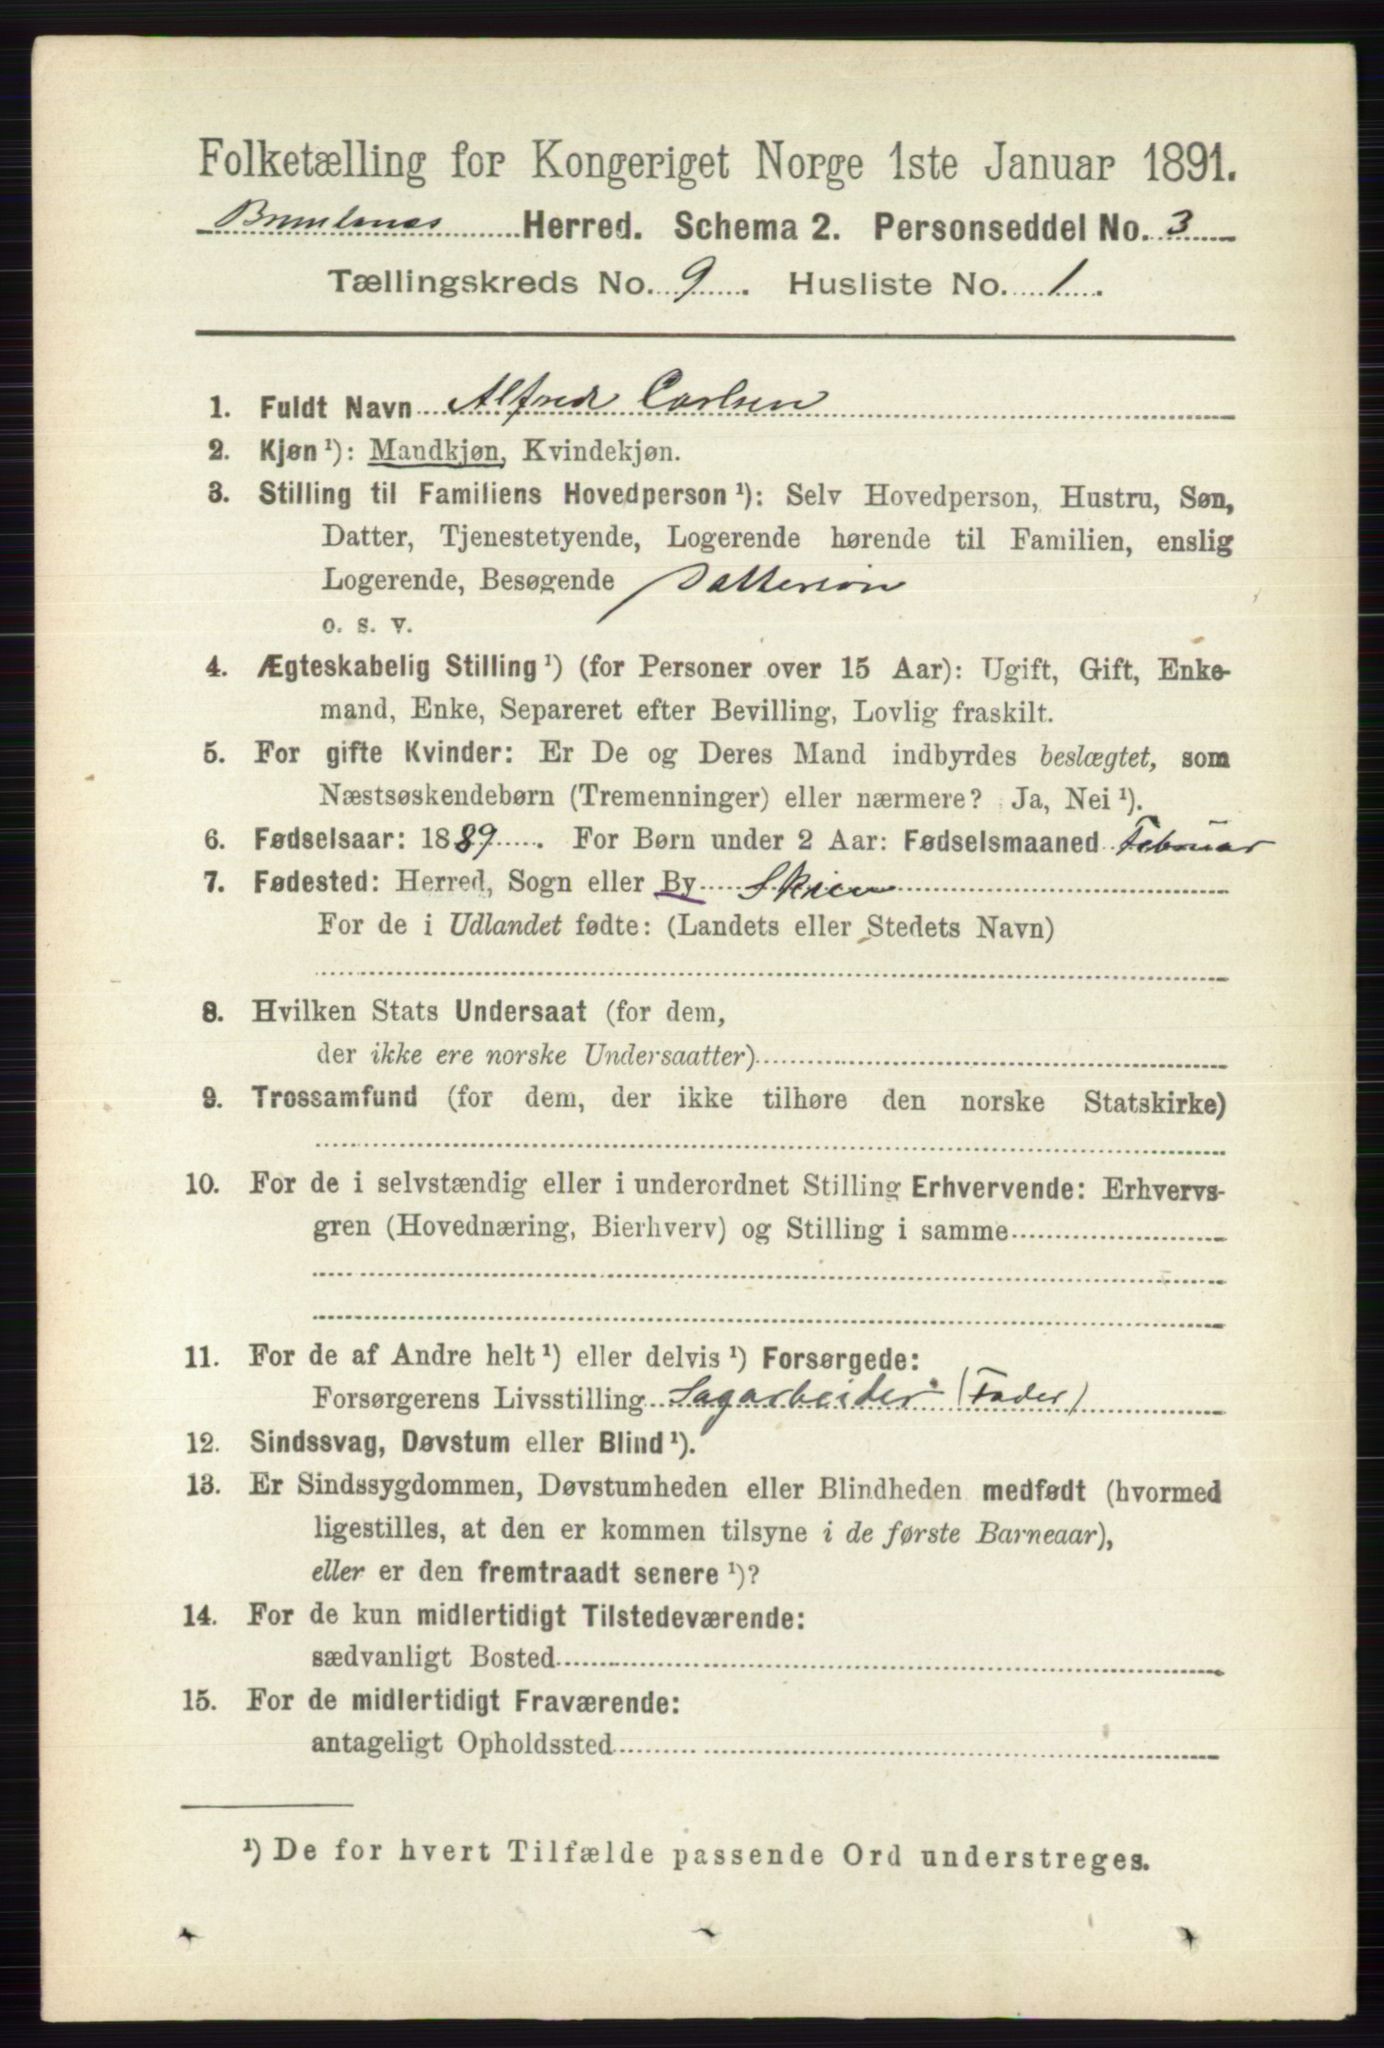 Folketælling for Kongeriget Norge 1ste Januar 1891.
Brunlanæs Herred. Schema 2. Personseddel No. 3
Tællingskreds No. 9. Husliste No. 1.
1. Fuldt Navn Alfred Carlsen
2. Kjøn¹): Mandkjøn, Kvindekjøn.
3. Stilling til Familiens Hovedperson¹): Selv Hovedperson, Hustru, Søn,
Datter, Tjenestetyende, Logerende hørende til Familien, enslig
Logerende, Besøgende Dattersøn
o. s. v.
4. Ægteskabelig Stilling¹) (for Personer over 15 Aar): Ugift, Gift, Enke-
mand, Enke, Separeret efter Bevilling, Lovlig fraskilt.
5. For gifte Kvinder: Er De og Deres Mand indbyrdes beslægtet, som
Næstsøskendebørn (Tremenninger) eller nærmere? Ja, Nei¹).
6. Fødselsaar: 1889. For Børn under 2 Aar: Fødselsmaaned Februar
7. Fødested: Herred, Sogn eller By Skien
For de i Udlandet fødte: (Landets eller Stedets Navn)
8. Hvilken Stats Undersaat (for dem,
der ikke ere norske Undersaatter)
9. Trossamfund (for dem, der ikke tilhøre den norske Statskirke)
10. For de i selvstændig eller i underordnet Stilling Erhvervende: Erhvervs-
gren (Hovednæring, Bierhverv) og Stilling i samme
11. For de af Andre helt¹) eller delvis¹) Forsørgede:
Forsørgerens Livsstilling Sagarbeider (Fader)
12. Sindssvag, Døvstum eller Blind¹).
13. Er Sindssygdommen, Døvstumheden eller Blindheden medfødt (hvormed
ligestilles, at den er kommen tilsyne i de første Barneaar),
eller er den fremtraadt senere¹)?
14. For de kun midlertidigt Tilstedeværende:
sædvanligt Bosted
15. For de midlertidigt Fraværende:
antageligt Opholdssted
¹) De for hvert Tilfælde passende Ord understreges.